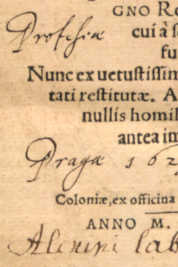 GNO RE
cui à s
fu
Nunc ex vetustissim
tati restitutæ. A
nullis homil
antea im
Praga 162
Coloniæ, ex officina
ANNO M.